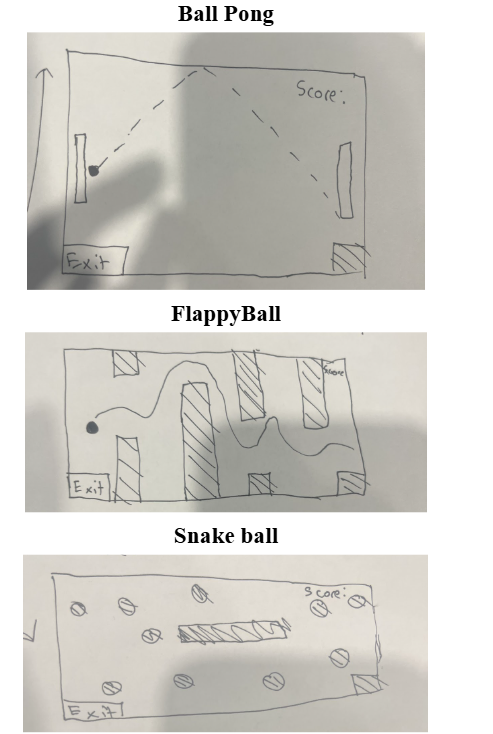 Ball Pong
Score:
Exit
FlappyBall
Score
Exit
Snake ball
Score:
Exit